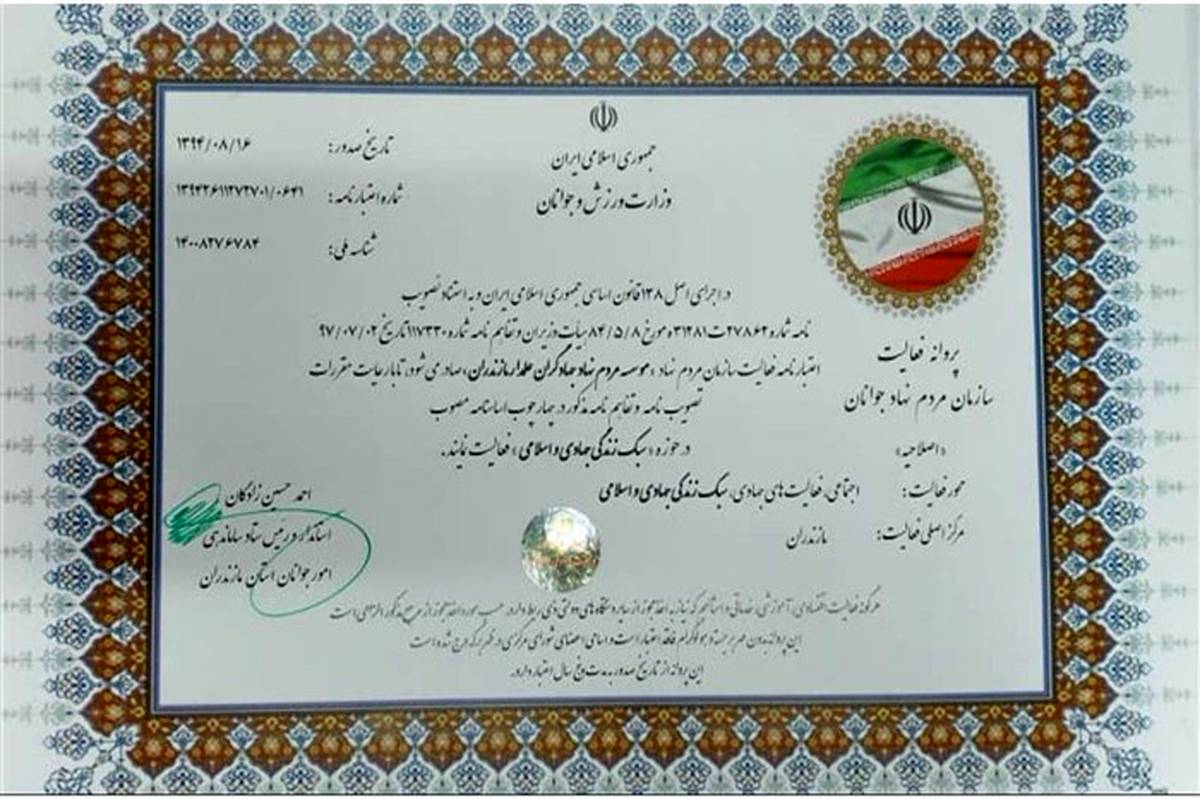 جمهوری اسلامی ایران
وزارت ورزش و جوانان
تاریخ صدور: ۱۳۹۴/۰۸/۱۶
شماره اعتبارنامه: ۱۳۹۴۲۶۱۱۲۷۲۷۰۱/۰۶۴۱
شناسه ملی: ۱۴۰۰۸۲۷۶۷۸۴
پروانه فعالیت
سازمان مردم نهاد جوانان
«اصلاحیه»
در اجرای اصل ۱۳۸ قانون اساسی جمهوری اسلامی ایران و به استناد تصویب
نامه شماره ۲۷۸۶۲ت۳۱۲۸۱ه مورخ ۸۴/۵/۸ هیات وزیران و تفاهم نامه شماره ۱۱۷۳۳۰ تاریخ ۹۷/۰۷/۰۲
اعتبارنامه فعالیت سازمان مردم نهاد «موسسه مردم نهاد جهادگران علمدار مازندران» صادر می شود، تا با رعایت مقررات
تصویب نامه و تفاهم نامه مذکور در چهارچوب اساسنامه مصوب
در حوزه «سبک زندگی جهادی و اسلامی» فعالیت نمایند.
محور فعالیت: اجتماعی، فعالیت های جهادی، سبک زندگی جهادی و اسلامی
مرکز اصلی فعالیت: مازندران
احمد حسین زادگان
استاندار و رئیس ستاد ساماندهی
امور جوانان استان مازندران
هرگونه فعالیت اقتصادی، آموزشی، خدماتی و امثالهم که نیاز به اخذ مجوز از سایر دستگاه های دولتی ذی ربط دارد، حسب مورد اخذ مجوز از مرجع مذکور الزامی است
این پروانه بدون مهر برجسته و هولوگرام فاقد اعتبار است و اسامی اعضای شورای مرکزی در ظهر برگه درج شده است
این پروانه از تاریخ صدور به مدت پنج سال اعتبار دارد.